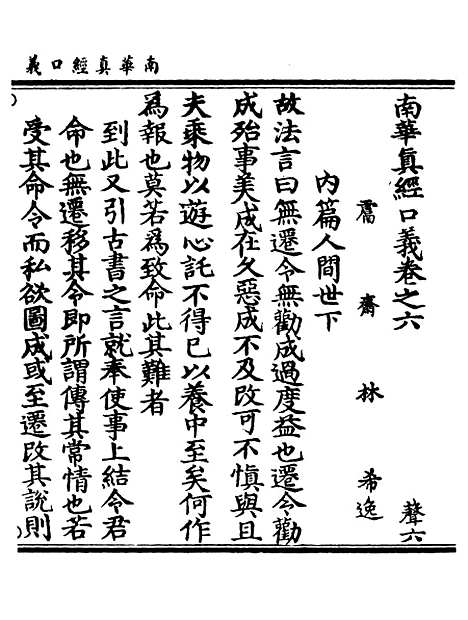 南華真經口義
南華真經口義卷之六　聲六
鬳齋林希逸
內篇人間世下
故法言曰無遷令無勸成過度益也遷令勸
成殆事美成在久惡成不及改可不慎與且
夫乘物以遊心託不得已以養中至矣何作
為報也莫若為致命此其難者
到此又引古書之言就奉使事上結令君
命也無遷移其令即所謂傳其常情也若
受其命令而私欲圖成或至遷改其說則